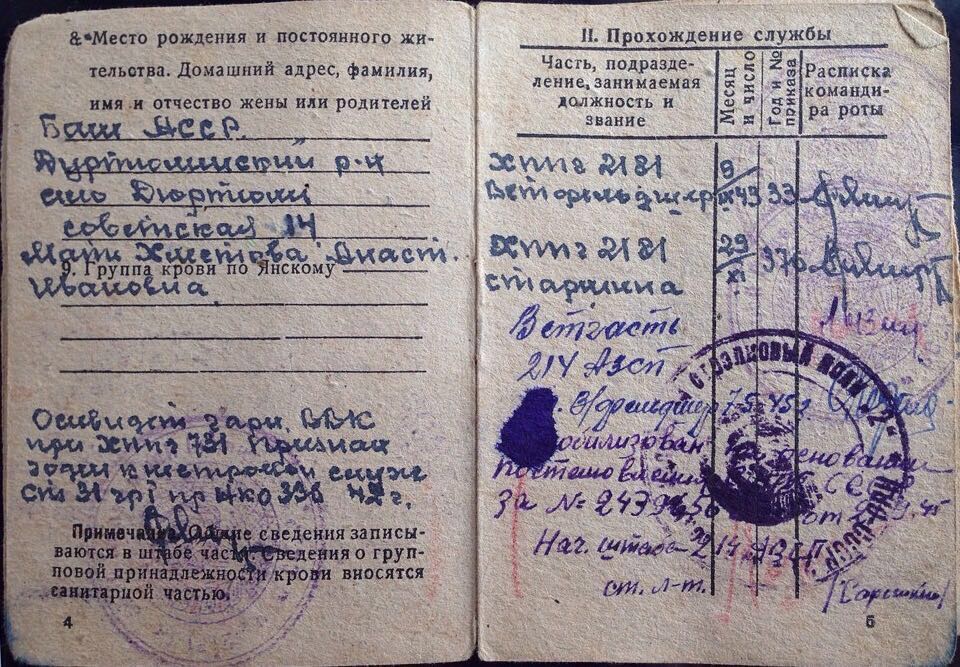 8. Место рождения и постоянного жи-
тельства. Домашний адрес, фамилия,
имя и отчество жены или родителей
Баш АССР.
Дуртюлинский р-н
село Дюртюли
советская 14
Мать Анаст.
9. Группа крови по Янскому
Ивановна
ВВК
при ХППГ 731 Признан
годен к нестроевой службе
ст 31 гр I пр НКО 336 42 г.
Примечание. Общие сведения записы-
ваются в штабе части. Сведения о груп-
повой принадлежности крови вносятся
санитарной частью.
4
II. Прохождение службы
Часть, подразде-
ление, занимаемая
должность и
звание
Месяц
и число
Год и №
приказа
Расписка
команди-
ра роты
ХППГ 2181 9
Ветфельдшер IX 43 33
ХППГ 2181 29
старшина XI 376
Ветчасть
214 АЗСП
С/фельдшер 7.5 45г
стрелковый полк
на основании
СССР
за № 2479
от 45
Нач. штаба 214 АЗСП
ст. л-т.
5